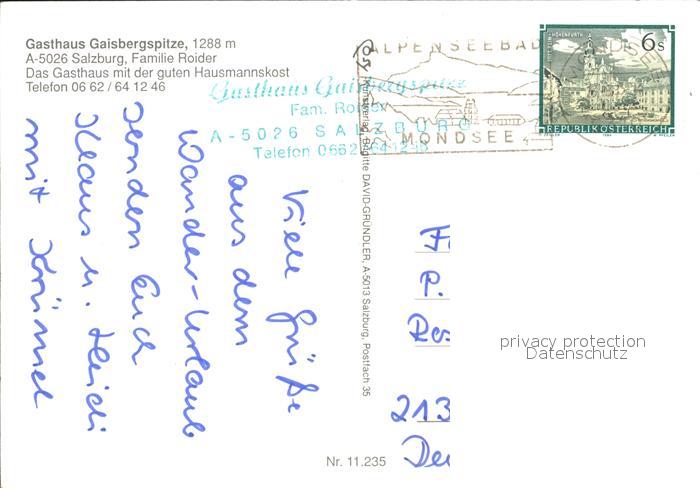 Gasthaus Gaisbergspitze, 1288 m
A-5026 Salzburg, Familie Roider
Das Gasthaus mit der guten Hausmannskost
Telefon 06 62 / 64 12 46
Gasthaus Gaisbergspitze
Fam. Roider
A-5026 SALZBURG
Telefon 0662
ALPENSEEBAD
MONDSEE
6 s
REPUBLIK ÖSTERREICH
Viele Grüße
aus dem
Wander-Urlaub
senden Euch
Klaus u. Heidi
mit Krümel
Kunstverlag Brigitte DAVID-GRÜNDLER, A-5013 Salzburg, Postfach 35
P.
213
privacy protection
Datenschutz
Nr. 11.235